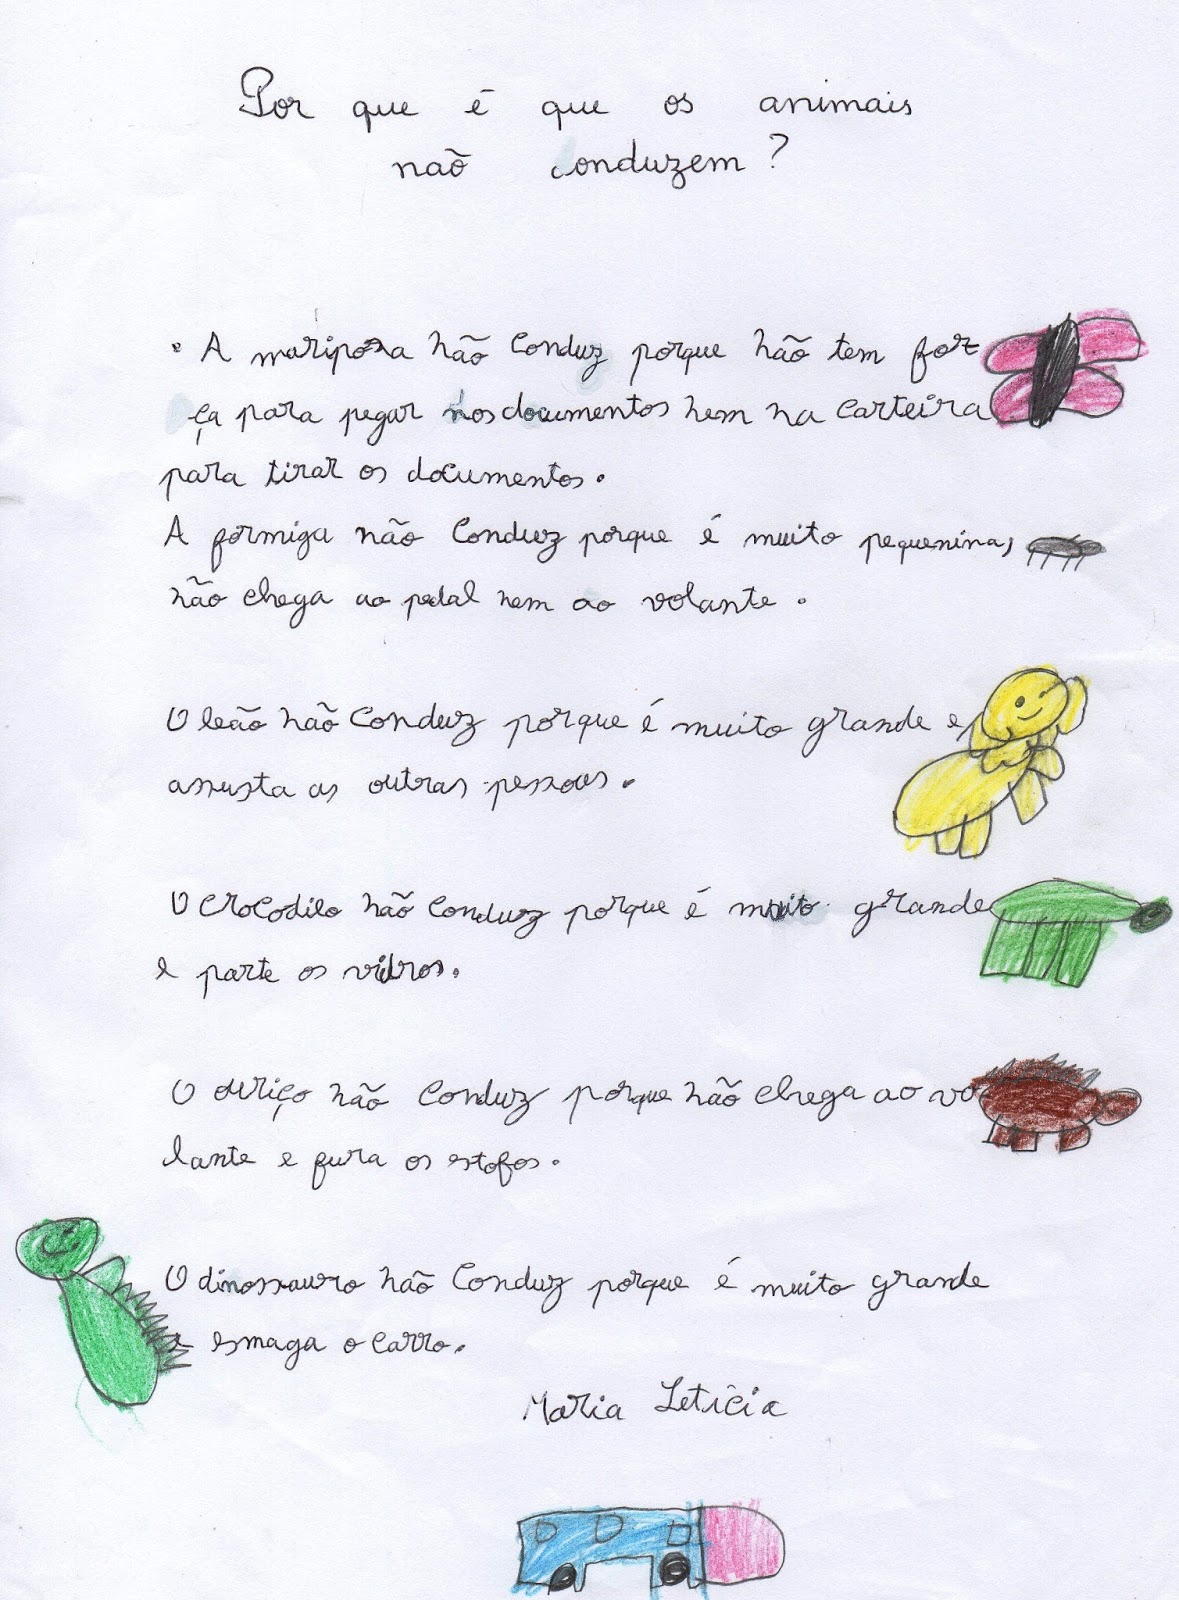 Por que é que os animais
não conduzem?
A mariposa não conduz porque não tem for
ça para pegar nos documentos nem na carteira
para tirar os documentos.
A formiga não conduz porque é muito pequenina,
não chega ao pedal nem ao volante.
O leão não conduz porque é muito grande e
assusta as outras pessoas.
O crocodilo não conduz porque é muito grande
e parte os vidros.
O ouriço não conduz porque não chega ao vo
lante e fura os estofos.
O dinossauro não conduz porque é muito grande
e esmaga o carro.
Maria Letícia